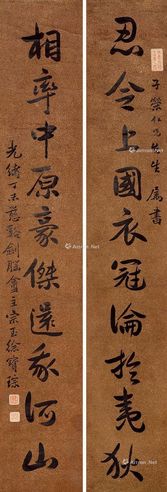 子榮仁兄先生屬書
忍令上國衣冠淪於夷狄
相率中原豪傑還我河山
光緒丁未慈谿劍膽盦主宗玉徐寶琮